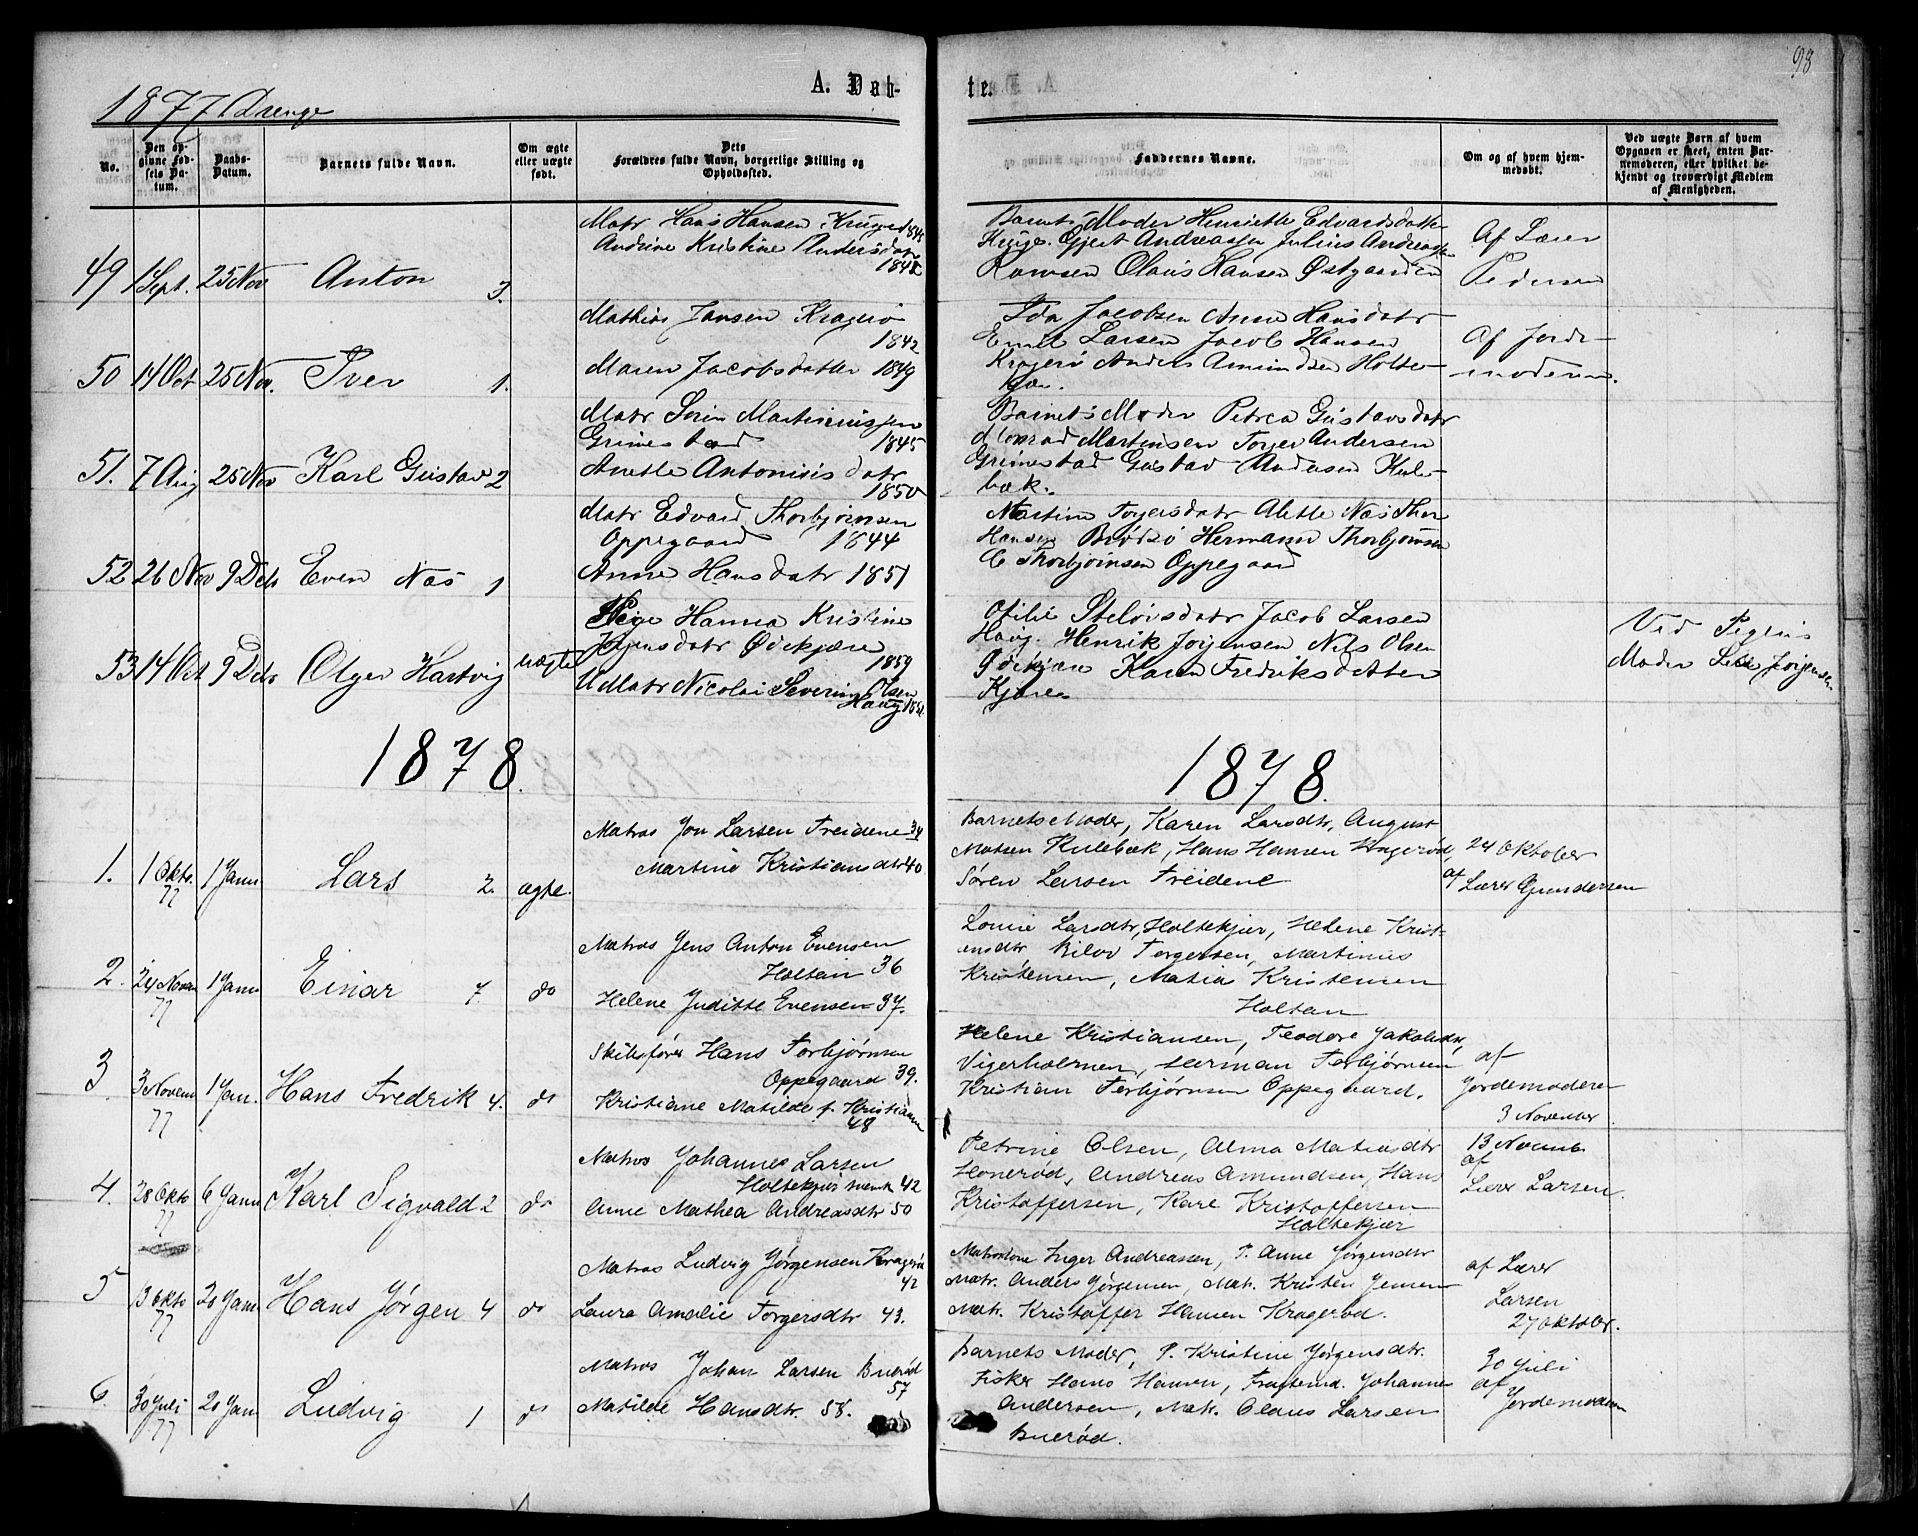 98
A. Døb-
te.
1877 Drenge
No.
Den opgivne Fødsels Datum.
Daabs-Datum.
Barnets fulde Navn.
Om ægte eller uægte født.
Dets Forældres fulde Navn, borgerlige Stilling og Opholdssted.
Faddernes Navne.
Om og af hvem hjemmedøbt.
Ved uægte Børn af hvem Opgaven er skeet, enten Barnemoderen, eller hvilket bekjendt og troværdigt Medlem af Menigheden.
49 1 Sept. 25 Nov Anton 3.
Matr Hans Hansen
Andrine Kristine Andersdatr
1848
Barnets Moder Henriette Edvardsdatter
Gjert Andreassen Julius Andreassen
Olaus Hansen Østgaarden
Af Lærer
Pedersen
50 14 Oct 25 Nov. Iver 1.
Mathias Jansen Kragerø
1842
Maren Jacobsdatter 1849
Ida Jacobsen Anne Hansdatr
Emil Larsen Jacob Hansen
Kragerø Anders Amundsen Holte-
kjær.
Af Jorde-
moderen.
51. 7 Aug 25 Nov Karl Gustav 2
Matr Sørin Martiniussen
Grimestad 1845
Anette Antonisis datr
1850
Barnets Moder Petrea Gustavsdatr
Konrad Martensen Torger Andersen
Grimestad Gustav Andersen Kule-
bæk.
52 26 Nov 9 Decb Even Næs 1
Matr Edvard Thorbjørnsen
Oppegaard 1844
Anne Hansdatr 1851
Martine Torgersdatr Alette Næs Thor
Hansen Brødsø Hermann Thorbjørnsen
C Thorbjørnsen Oppegaard
53 14 Oct 9 Decb Olger Hartvig uægte
Pige Hanna Kristine
Jørgensdatr Ødekjære
1859
U Matr Nicolai Severin Olsen
Haug
Otilie Jacob Larsen
Haug. Henrik Jørgensen Nils Olsen
Ødekjære Karen Fredriksdatter
Kjære
Ved Pigens
Moder Jørgensen
1878.
1878.
1. 1 Okto. 77 1 Janu. Lars 2. ægte.
Matros Jon Larsen Treidene 34
Martine Kristiansdtr 40
Barnets Moder, Karen Larsdtr, August
Matsen Kulebæk, Hans Hansen Hagerød,
Søren Larsen Treidene
24 Oktober
af Lærer Gundersen
2. 24 Novem 77 1 Janu Einar 7 do
Matros Jens Anton Evensen
Holtan 36
Helene Juditte Evensen 37.
Lovise Larsdtr, Holtekjær, Helene Krist-
ensdtr Torgersen, Martinius
Kristensen, Matia Kristensen
Holtan
3 3 Novem 77 1 Jan. Hans Fredrik 4. do
Skibsfører Hans Torbjørnsen
Oppegaard 39.
Kristiane Matilde f. Kristiansen
48
Helene Kristiansen, Teodore Jakobsdtr,
Vigerholmen, Herman Torbjørnsen
Kristian Torbjørnsen Oppegaard.
af
Jordemoderen
3 November
4. 28 Okto 77 6 Janu Karl Sigvald 2 do
Matros Johannes Larsen
Holtekjær 42
Anne Mathea Andreasdtr 50
Petrine Olsen, Alma Matiasdtr
Honerød, Andreas Amundsen, Hans
Kristoffersen, Kare Kristoffersen
Holtekjær
13 Novemb
af
Lærer Larsen.
5 13 Okto 77 20 Jan. Hans Jørgen 4 do
Matros Ludvig Jørgensen Kragerød
42
Laura Amalie Torgersdtr 43.
Matroskone Inger Andreassen, P. Anne Jørgensdtr
Matr. Anders Jørgensen, Mat. Kristen Jensen
Mat. Kristoffer Hansen Kragerød.
af Lærer
Larsen
27 Oktober.
6. 30 Juli 77 20 Jan Ludvig 1 do
Matros Johan Larsen Buerød
57
Matilde Hansdtr. 58.
Barnets Moder, P. Kristine Jørgensdtr.
Fisker Hans Hansen, Johannes
Andersen, Mat. Olaus Larsen
Buerød.
30 Juli
af
Jordemoderen